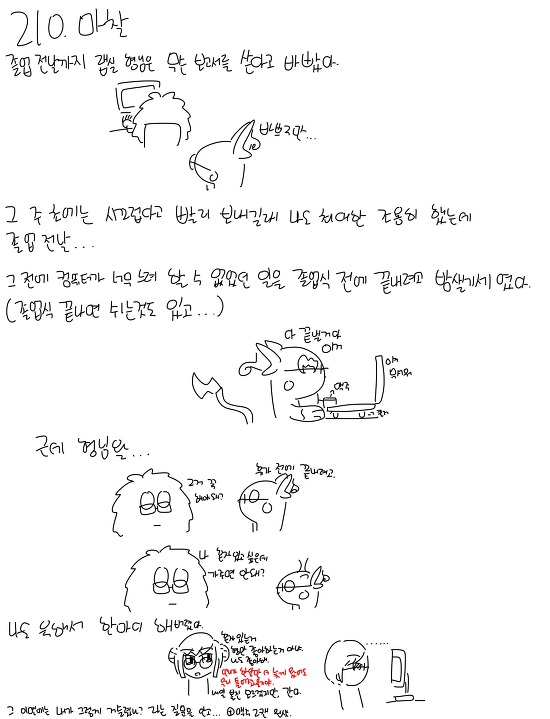 210. 마찰
졸업 전날까지 랩실 형님은 무슨 보고서를 쓴다고 바빴다.
바쁘지만...
그 주 초에는 시끄럽다고 빨리 보내길래 나도 최대한 조용히 했는데
졸업 전날...
그 전에 컴퓨터가 너무 느려 할 수 없었던 일을 졸업식 전에 끝내려고 밤샐기세 였다.
(졸업식 끝나면 쉬는것도 있고...)
다 끝낼거다
이거
맥주
근데 형님왈...
그거 꼭
해야돼?
휴가 전에 끝내려고.
나 혼자있고 싶은데
가주면 안돼?
나도 욱해서 한마디 해버렸다.
혼자있는거
형만 좋아하는거 아냐.
나도 좋아해.
......
그 이면에는 내가 그렇게 거슬렸나? 라는 질문을 안고...